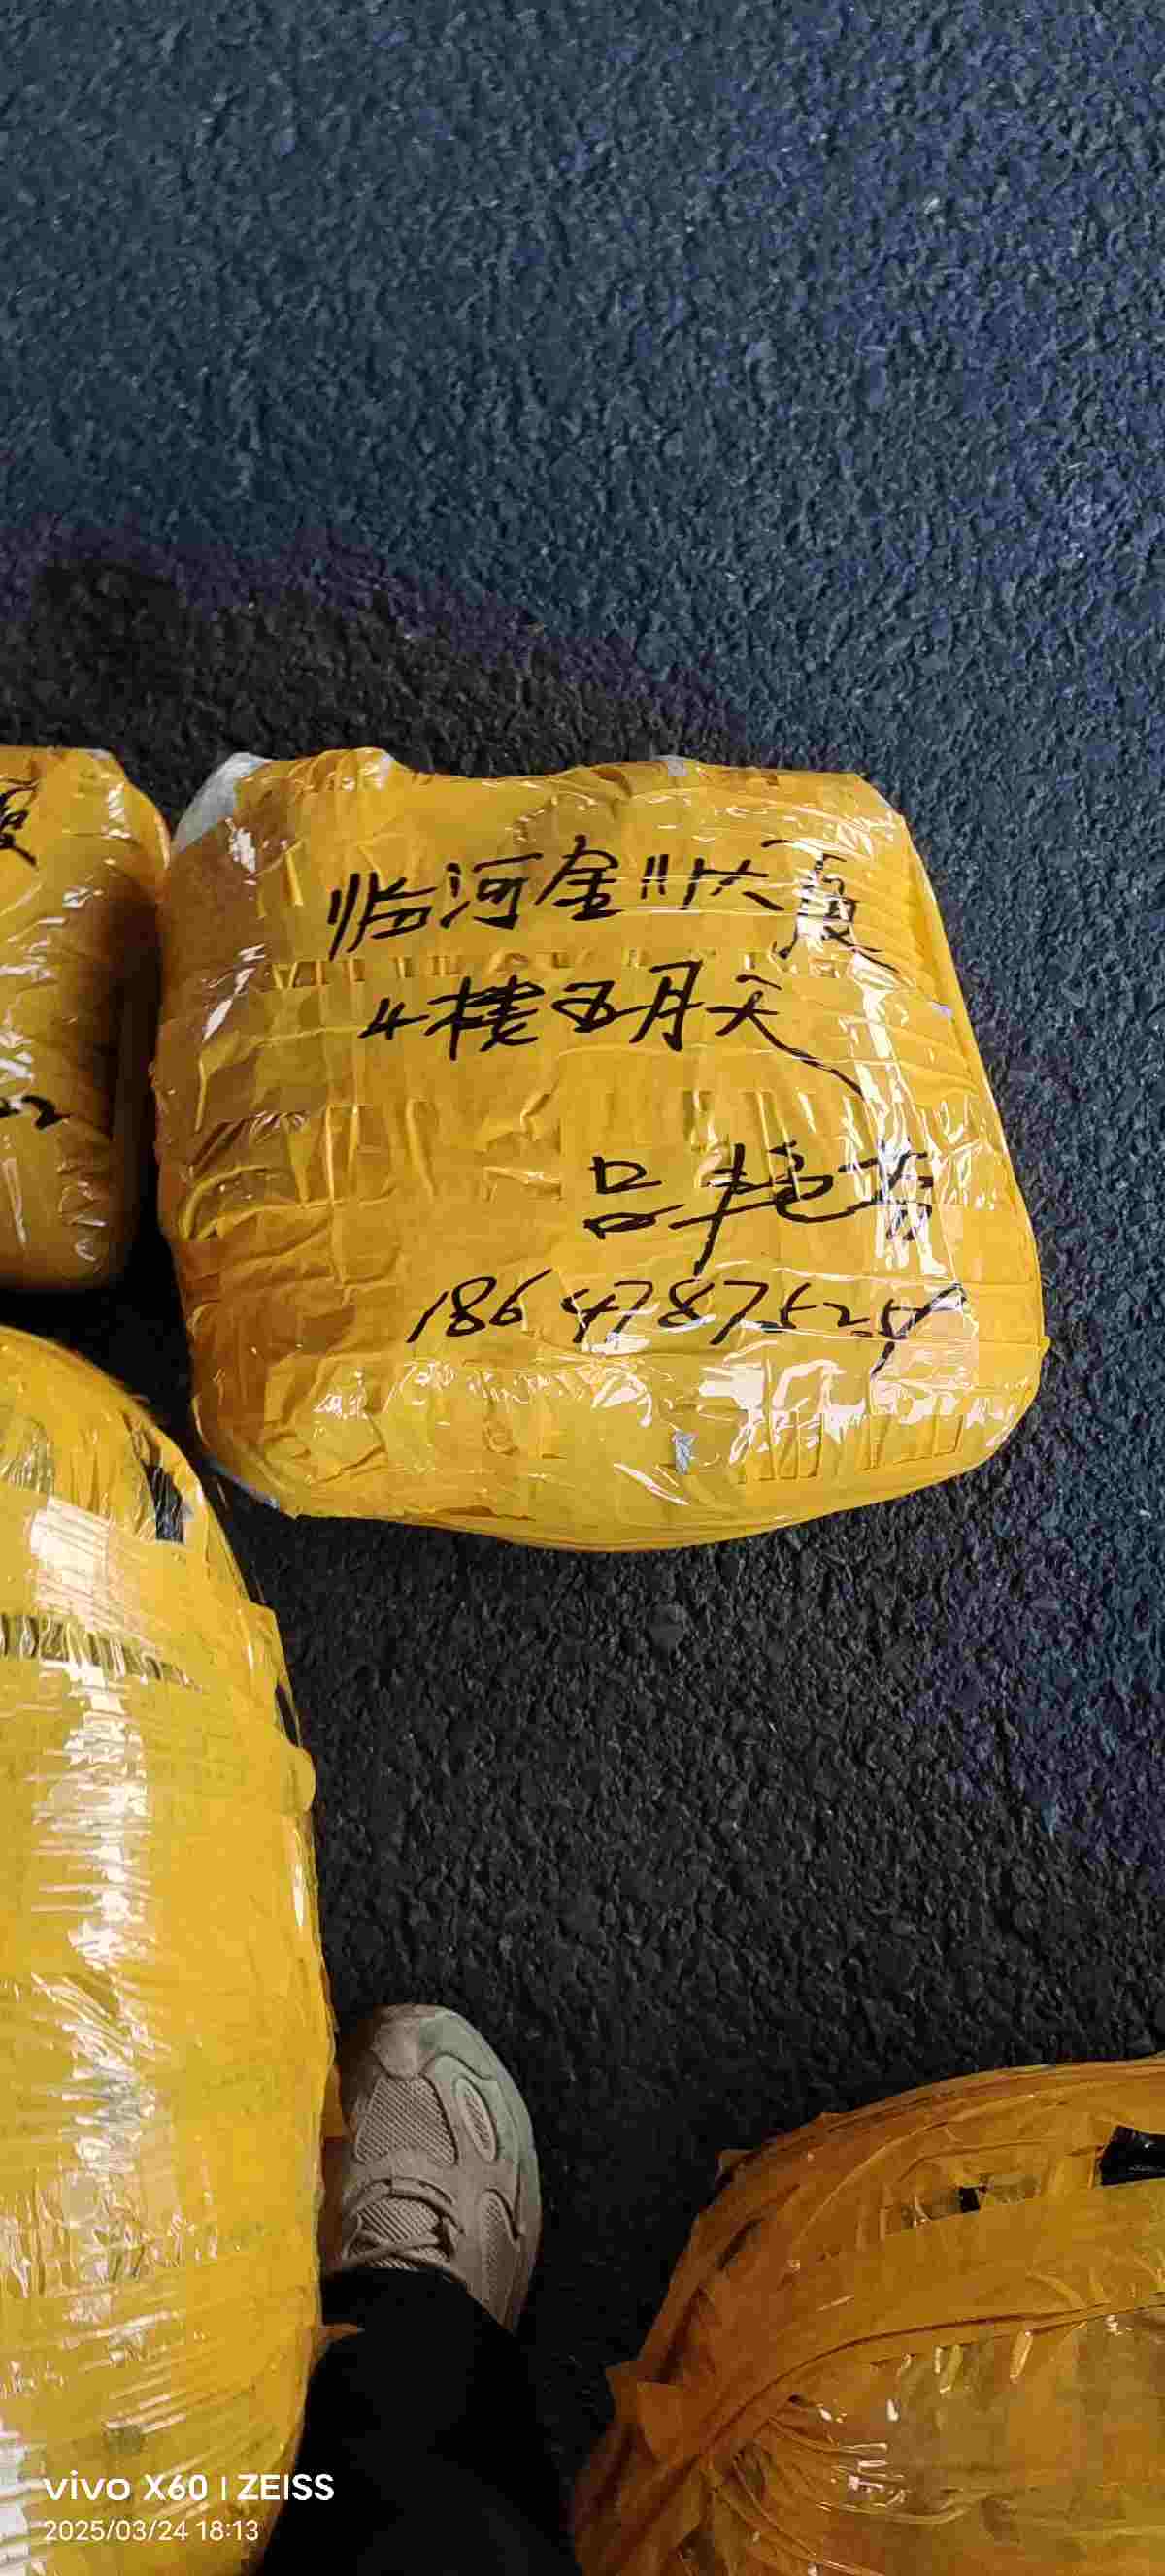 临河金川大厦
4楼五月天
吕艳吉
18647875254
vivo X60 | ZEISS
2025/03/24 18:13